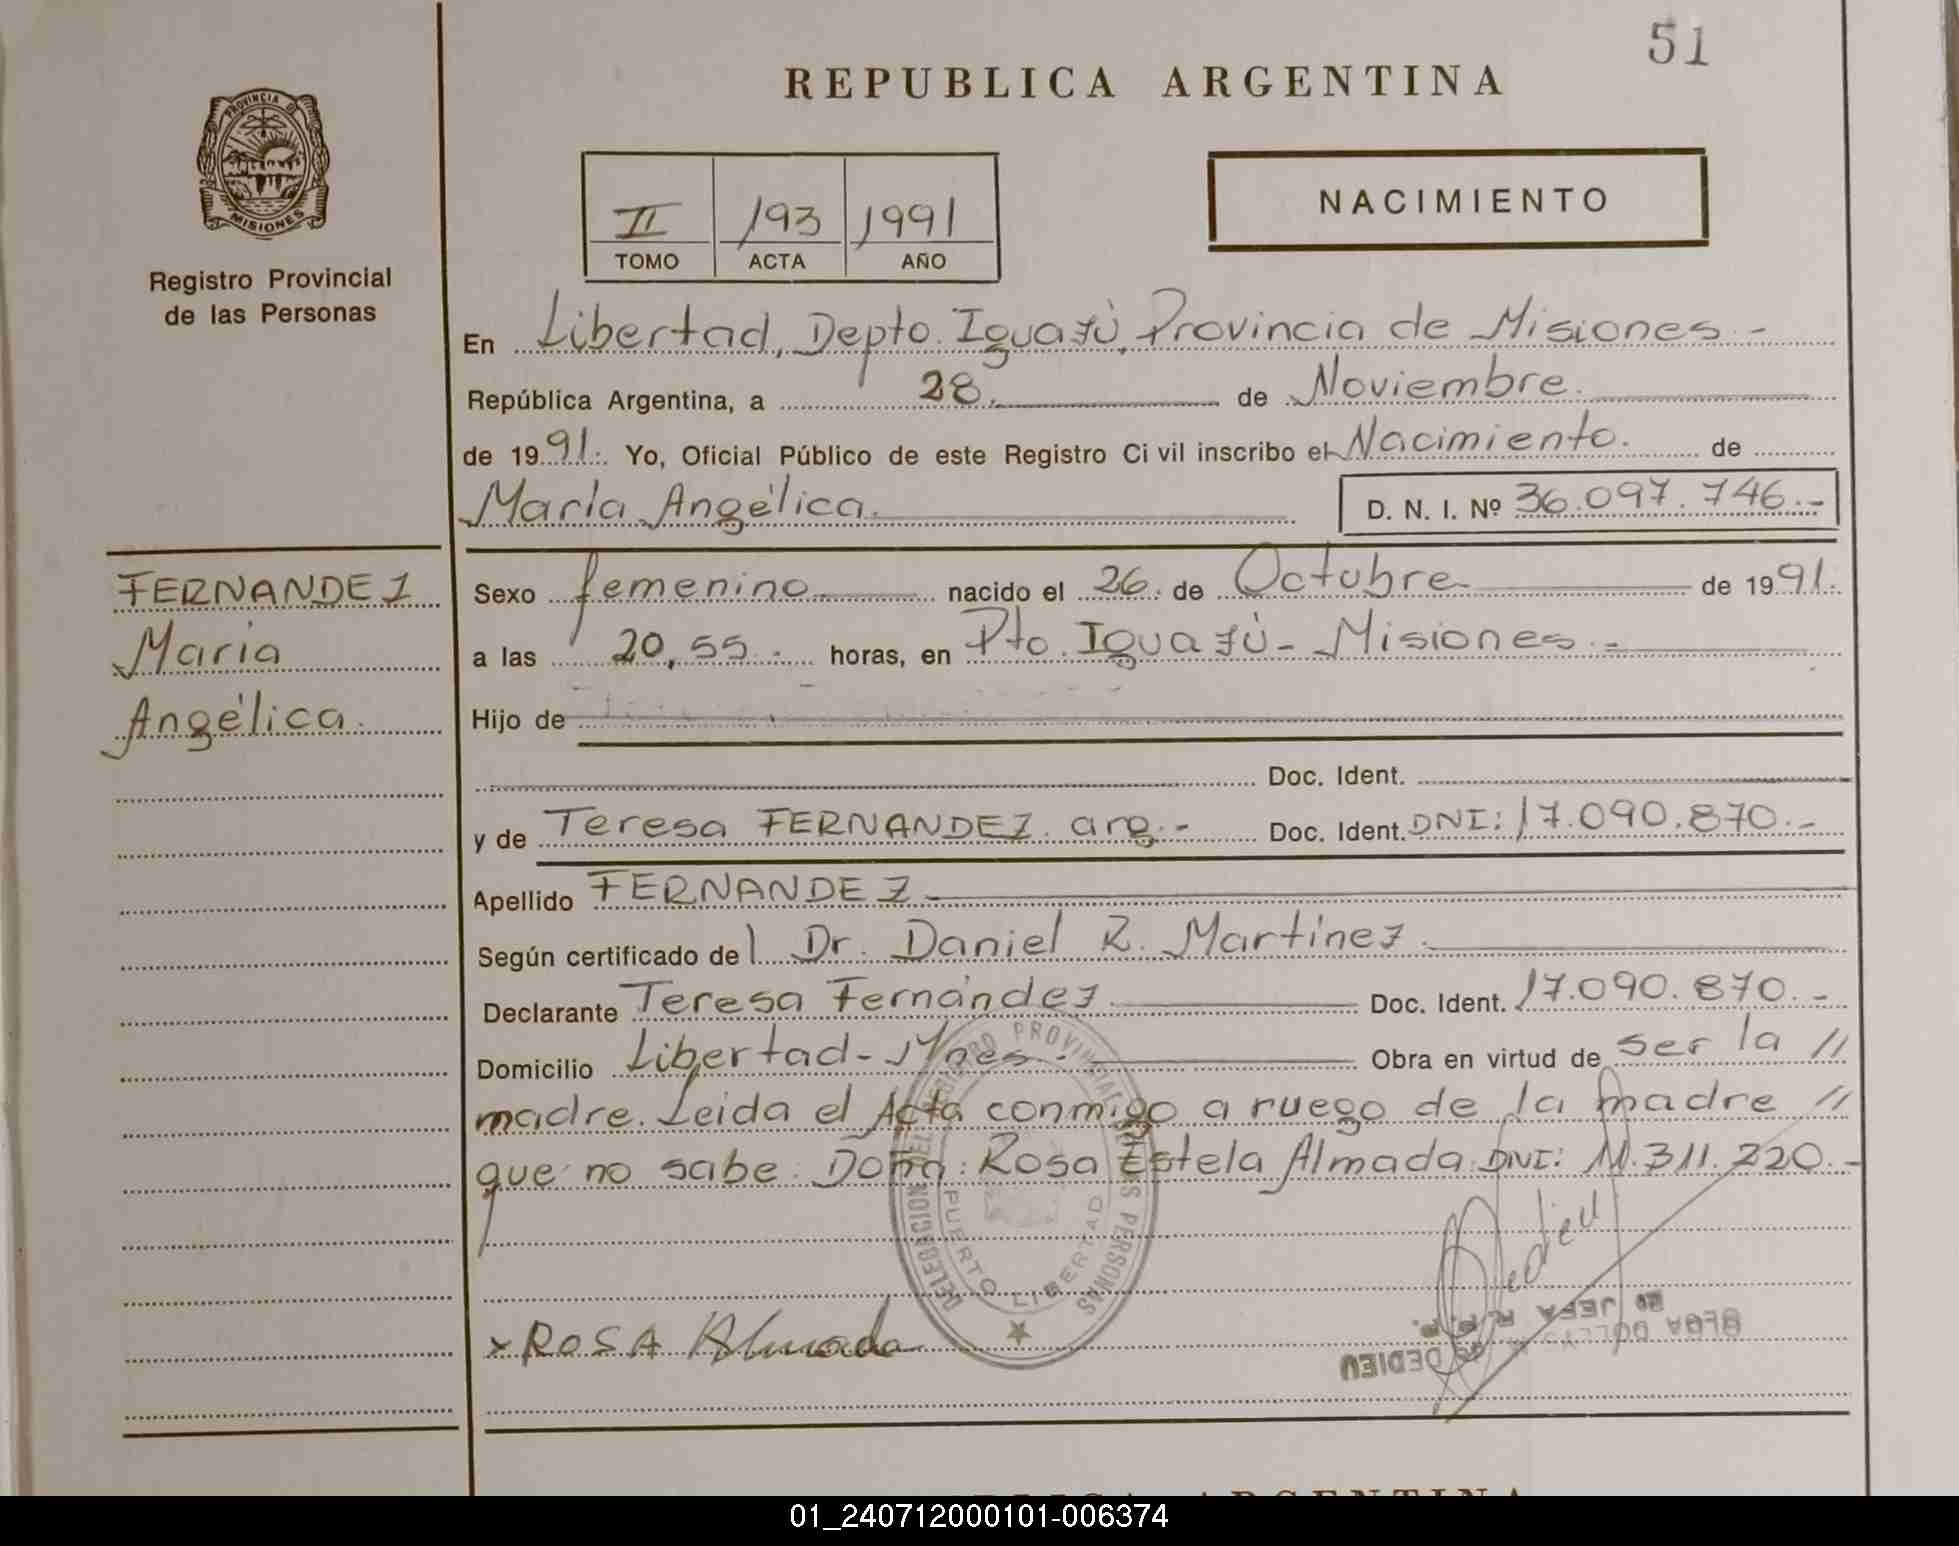 51
REPUBLICA ARGENTINA
PROVINCIA DE
MISIONES
Registro Provincial
de las Personas
II 193 1991
TOMO ACTA AÑO
NACIMIENTO
En Libertad, Depto. Iguazú, Provincia de Misiones -
República Argentina, a 28. de Noviembre.
de 1991. Yo, Oficial Público de este Registro Civil inscribo el Nacimiento. de
María Angélica. D. N. I. Nº 36.097.746.-
FERNANDEZ
María
Angélica.
Sexo femenino nacido el 26. de Octubre de 1991.
a las 20,55.- horas, en Pto. Iguazú - Misiones.-
Hijo de
Doc. Ident.
y de Teresa FERNANDEZ. arg.- Doc. Ident. DNI: 17.090.870.-
Apellido FERNANDEZ
Según certificado del Dr. Daniel R. Martínez.
Declarante Teresa Fernández Doc. Ident. 17.090.870.-
Domicilio Libertad - Mnes. Obra en virtud de ser la //
madre. Leida el Acta conmigo a ruego de la madre //
que no sabe: Doña: Rosa Estela Almada DNI: 11.311.220.-
DELEGACION DEL REGISTRO PROVINCIAL DE LAS PERSONAS
PUERTO LIBERTAD
x ROSA Almada
Dedieu
JEFA R. P. P.
OLGA
DE DEDIEU
REPUBLICA ARGENTINA
01_240712000101-006374